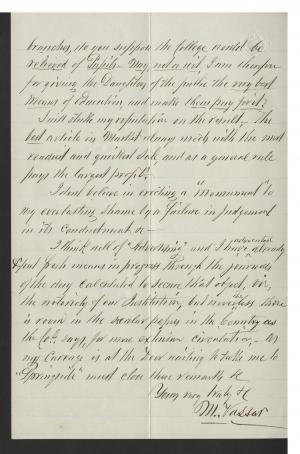 branches, do you suppose the College would be
relieved of Pupils Nay, not a bit, I am therefore
for giving the Daughters of the public the very best
Means of Education and make them pay for it!
I will stake my reputation on the result. The
best article in Market always meets with the most
readiest and quickest Sale and as a general rule
pays the largest profit.
I dont believe in erecting a "Monument" to
my everlasting Shame by a failure in judgement
in its Conductment. &c
I think well of "Advertising" and I have already
put such means in progress through the journals
of the day calculated to secure that object, or,
the notoriety of our Institution, but there
is room in the secular papers in the Country as
the says, for more extensive circulation, - As
my Carriage is at the Door waiting to take me to
"Springside" must close these remarks &c
Yours very truly &c
M. Vassar